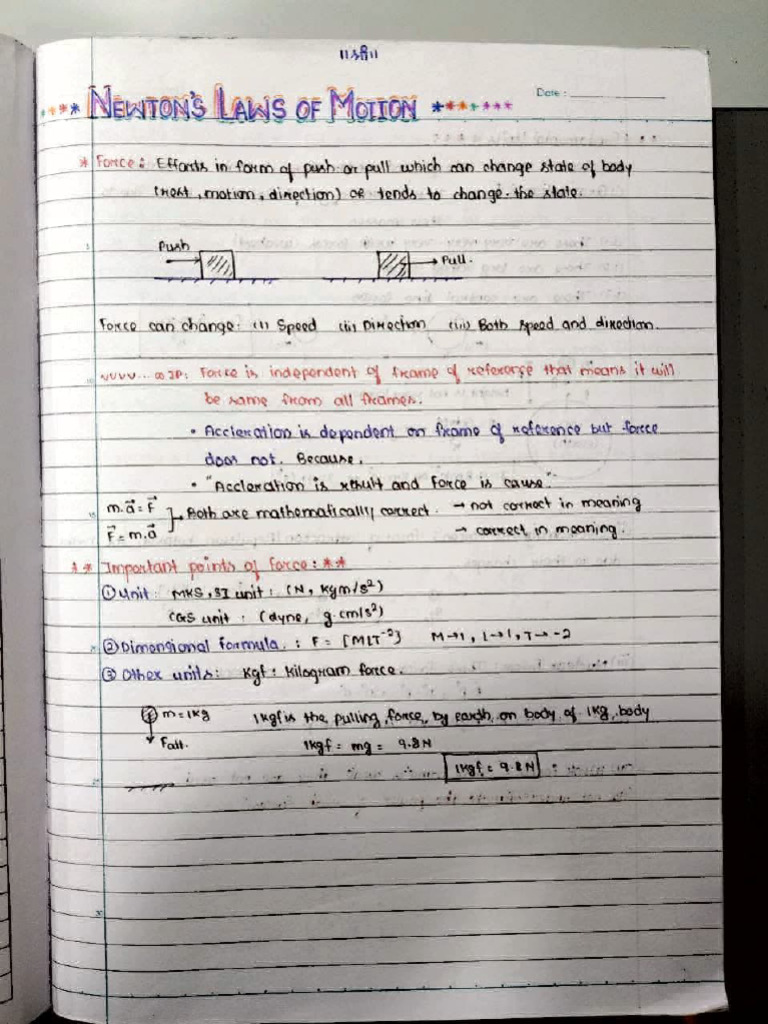 ॥श्री॥
Date:
NEWTON'S LAWS OF MOTION
* Force: Efforts in form of push or pull which can change state of body
(rest, motion, direction) or tends to change the state.
Push
Pull.
Force can change: (i) Speed (ii) Direction (iii) Both speed and direction.
VVVV... ∞ IP: Force is independent of frame of reference that means it will
be same from all frames.
• Accleration is dependent on frame of reference but force
does not. Because,
• "Accleration is result and Force is cause".
m.a⃗ = F⃗
F⃗ = m.a⃗
Both are mathematically correct. → not correct in meaning
→ correct in meaning.
* * Important points of force: **
① Unit: MKS, SI unit: (N, kgm/s²)
CGS unit: (dyne, g.cm/s²)
② Dimensional formula.: F = [MLT⁻²] M→1, L→1, T→-2
③ Other units: Kgf: Kilogram force.
m=1kg
Fall.
1kgf is the pulling, force, by earth, on body of 1kg, body
1kgf = mg = 9.8N
1kgf = 9.8N